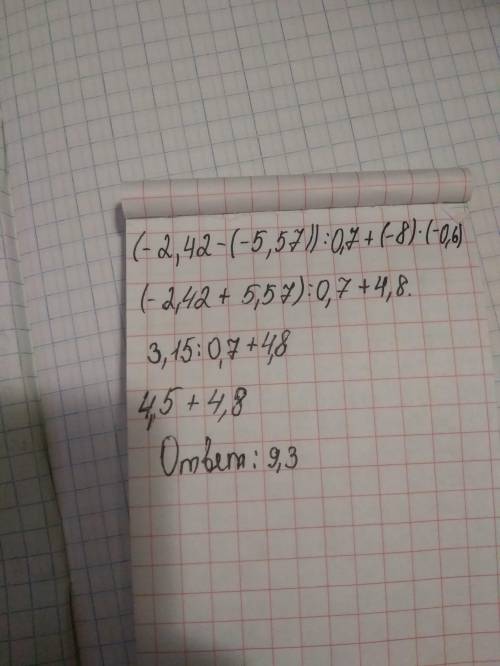 (-2,42-(-5,57)):0,7+(-8)·(-0,6)
(-2,42+5,57):0,7+4,8.
3,15:0,7+4,8
4,5+4,8
Ответ: 9,3